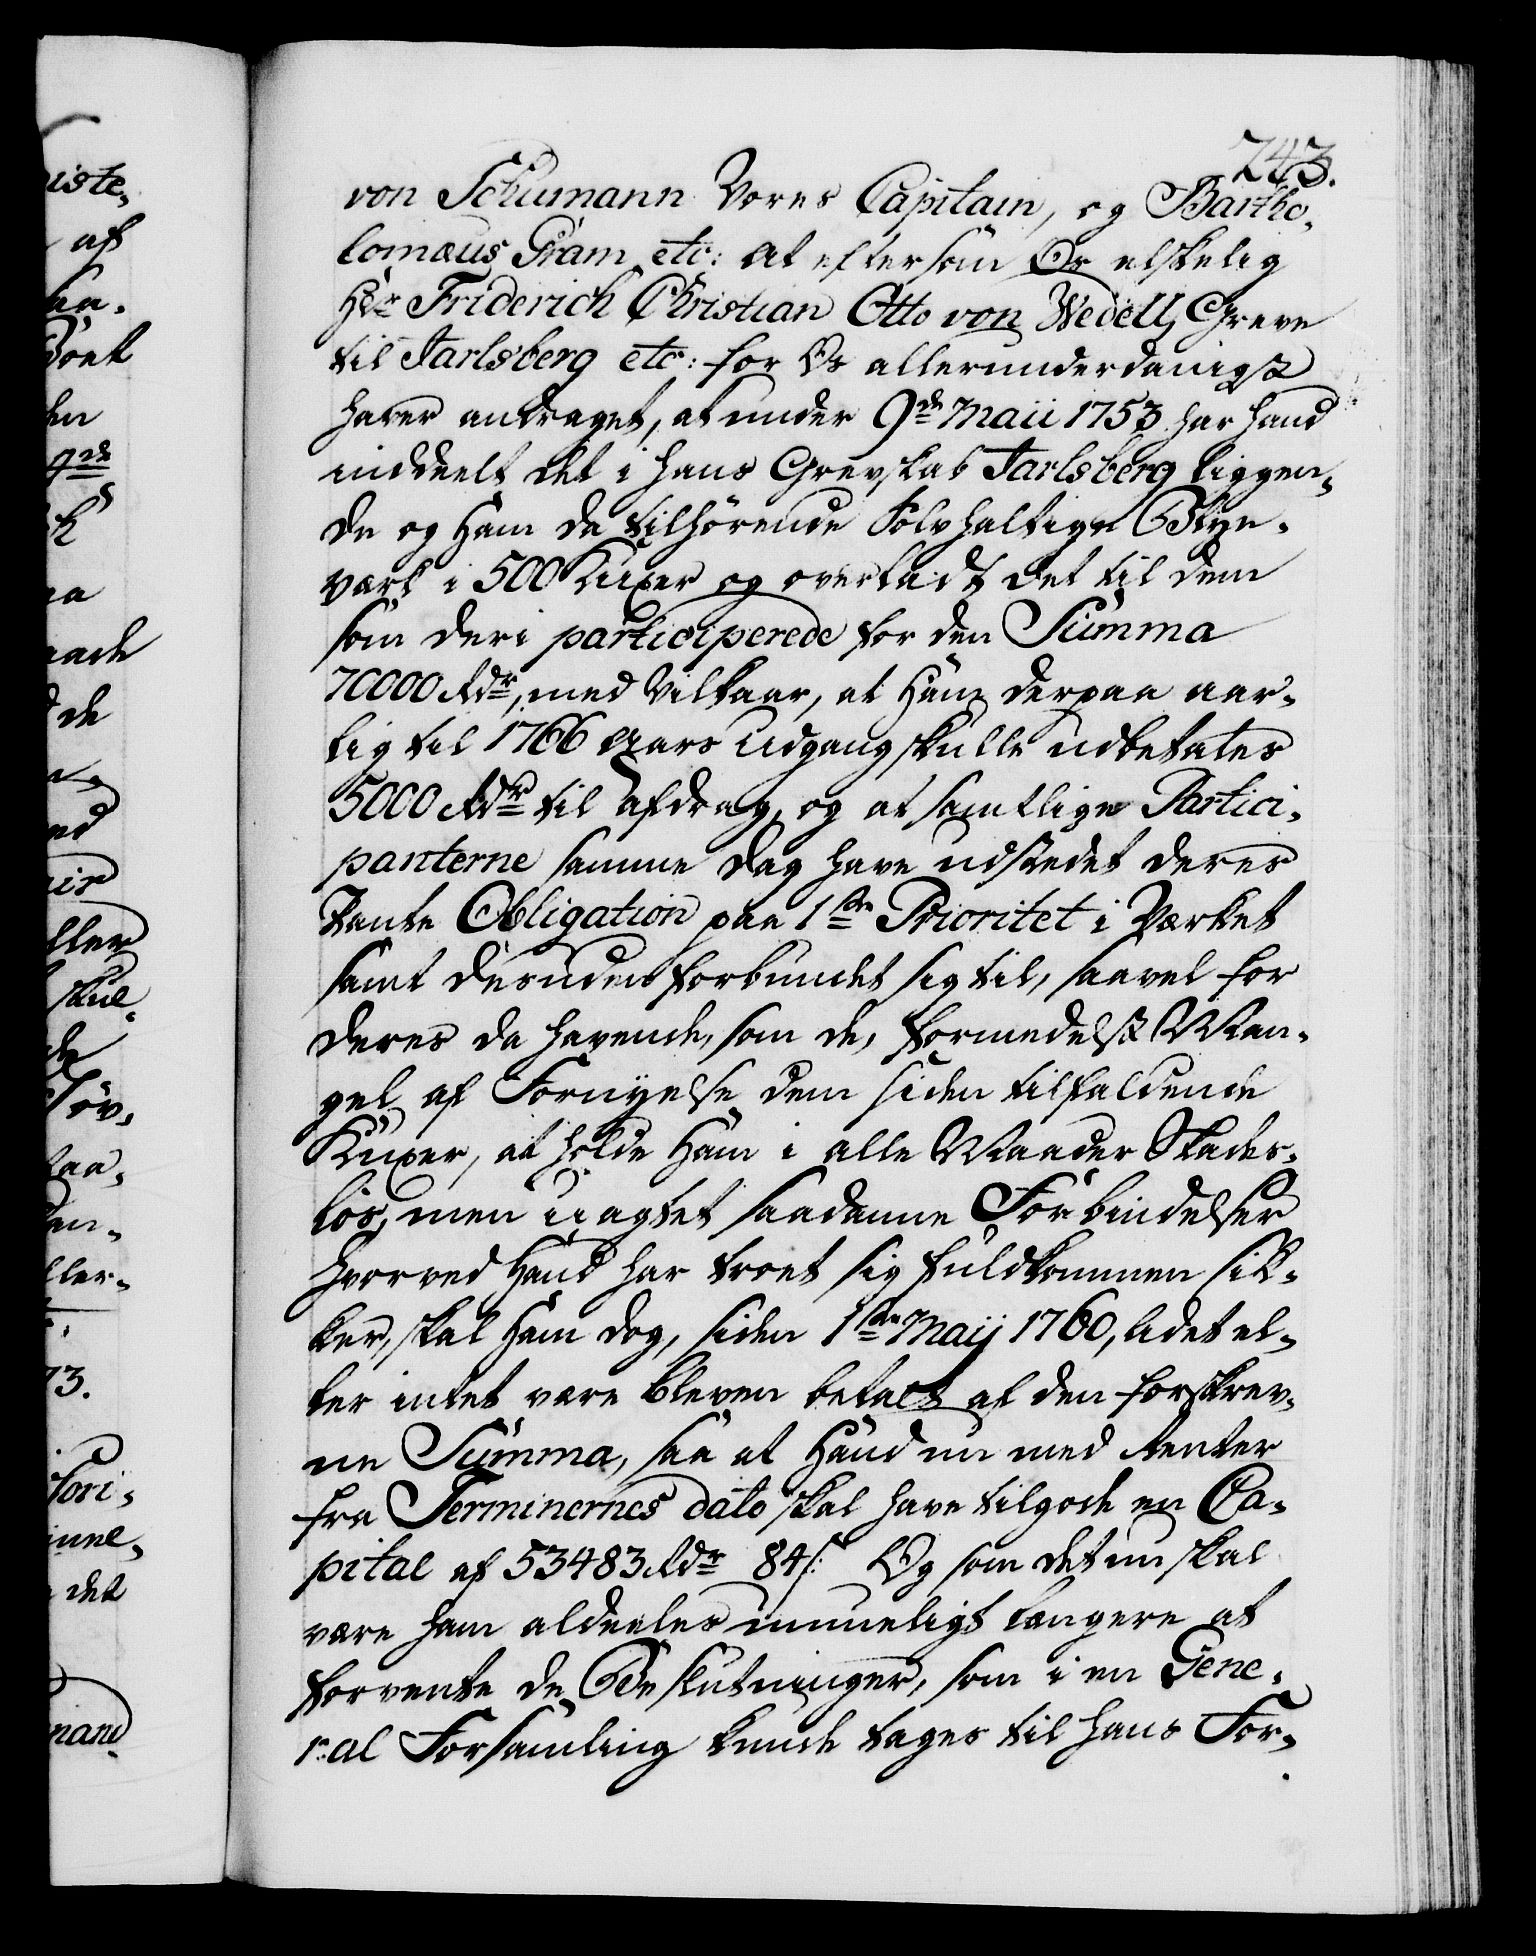 243.
von Schumann Vores Capitain, og Bartho-
lomæus Gram etc: At eftersom Os elskelig
Hr Friderich Christian Otto von Wedell, Greve
til Jarlsberg etc: for Os allerunderdanigst
haver andraget, at under 9de Maii 1753 har hand
inddeelt det i hans Grevskab Jarlsberg liggen-
de og Ham da tilhørende Sølvhaltige Blye-
værk i 500 Kuxer og overladt det til dem
som deri participerede for den Summa
70000 Rdr, med Vilkaar, at Ham derpaa aar-
lig til 1766 Aars Udgang skulle udbetales
5000 Rdr til Afdrag, og at samtlige Partici-
panterne samme Dag have udstedet deres
Pante Obligation paa 1ste Prioritet i Værket
samt desuden forbundet sig til, saavel for
deres da havende, som de, formedelst Man-
gel af Fornyelse dem siden tilfaldende
Kuxer, at holde Ham i alle Maader Skades-
løs, men uagtet saadanne Forbindelser
hvorved Hand har troet sig fuldkommen sik-
ker, skal Ham dog, siden 1ste Maij 1760, lidet el-
ler intet være bleven betalt af den forskrev-
ne Summa, saa at Hand nu med Renter
fra Terminernes dato skal have tilgode en Ca-
pital af 53483 Rdr 84 s: Og som det nu skal
være ham aldeeles umueligt længere at
forvente de Beslutninger, som i en Gene-
ral Forsamling kunde tages til hans For-